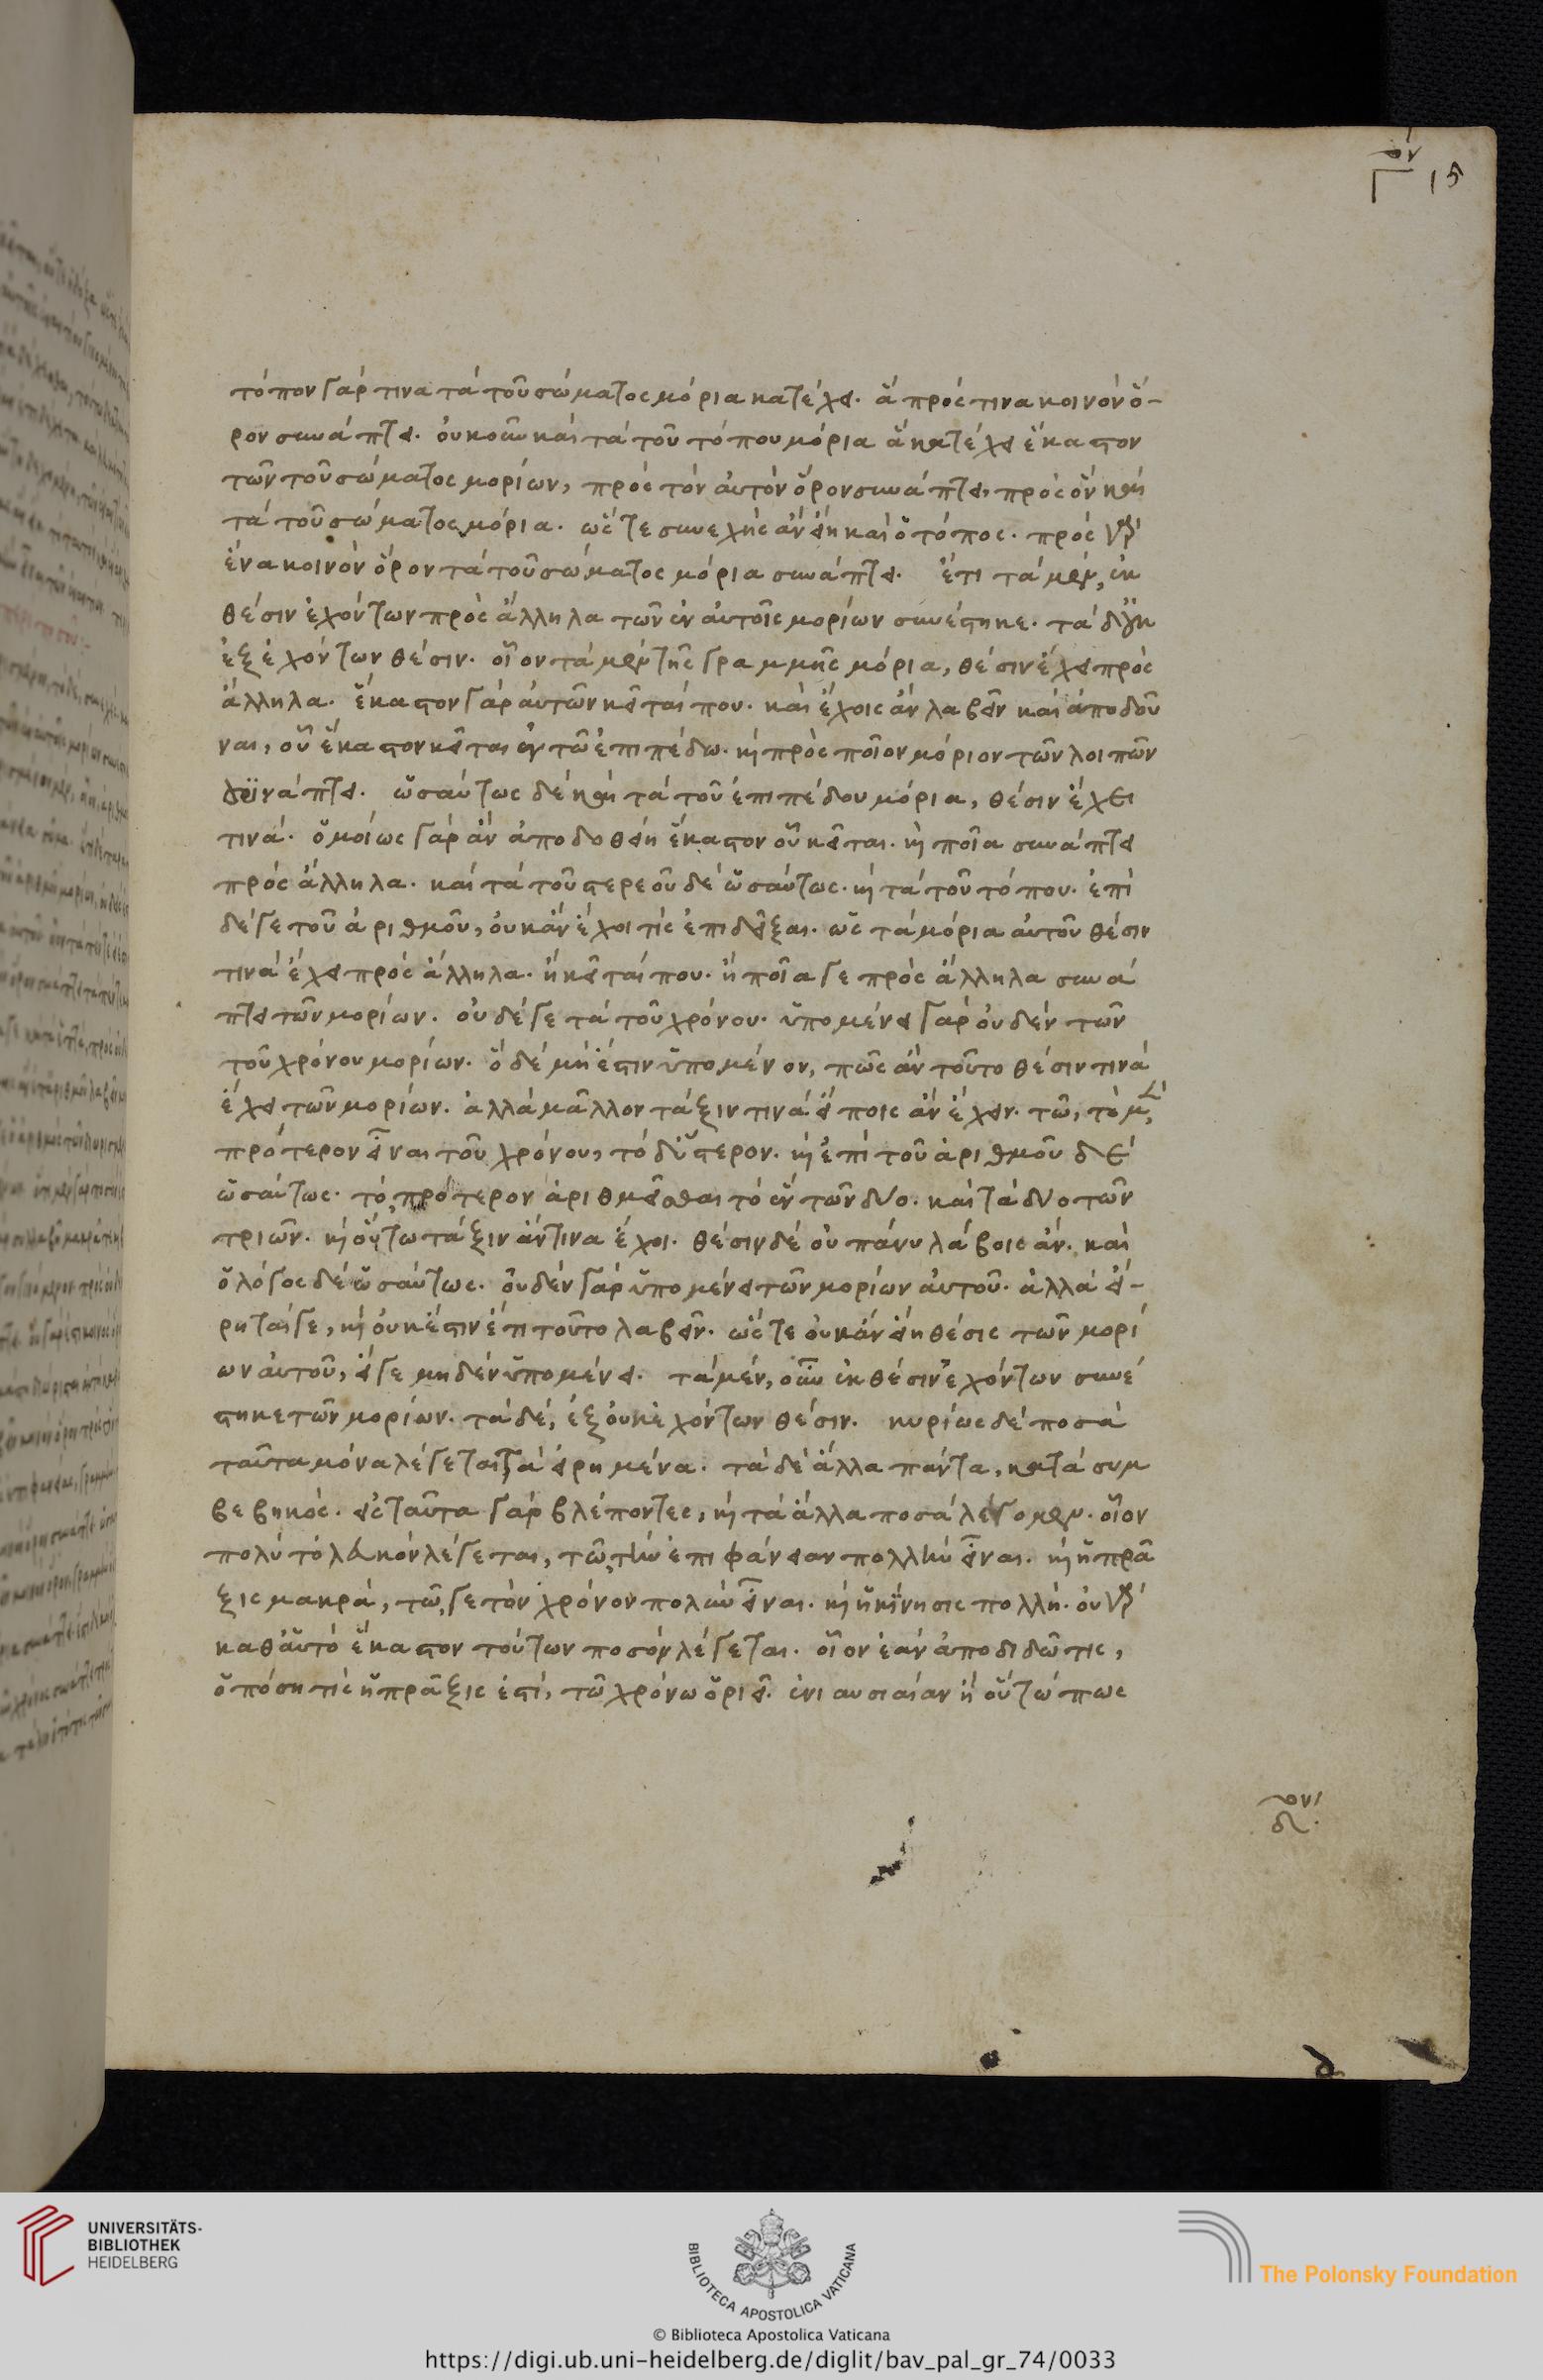 τὸν
Γ 15
τόπον γάρ τινα τὰ τοῦ σώματος μόρια κατέχει. ἃ πρός τινα κοινὸν ὅ-
ρον συνάπτει. οὐκοῦν καὶ τὰ τοῦ τόπου μόρια ἃ κατέχει ἕκαστον
τῶν τοῦ σώματος μορίων, πρὸς τὸν αὐτὸν ὅρον συνάπτει, πρὸς ὃν καὶ
τὰ τοῦ σώματος μόρια. ὥστε συνεχὴς ἂν εἴη καὶ ὁ τόπος. πρὸς γὰρ
ἕνα κοινὸν ὅρον τὰ τοῦ σώματος μόρια συνάπτει. ἔτι τὰ μὲν, ἐκ
θέσιν ἐχόντων πρὸς ἄλληλα τῶν ἐν αὐτοῖς μορίων συνέστηκε. τὰ δὲ οὐκ
ἐξ ἐχόντων θέσιν. οἷον τὰ μὲν τῆς γραμμῆς μόρια, θέσιν ἔχει πρὸς
ἄλληλα. ἕκαστον γὰρ αὐτῶν κεῖταί που. καὶ ἔχοις ἂν λαβεῖν καὶ ἀποδοῦ
ναι, οὗ ἕκαστον κεῖται ἐν τῶ ἐπιπέδω. καὶ πρὸς ποῖον μόριον τῶν λοιπῶν
συνάπτει. ὡσαύτως δὲ καὶ τὰ τοῦ ἐπιπέδου μόρια, θέσιν ἔχει
τινά. ὁμοίως γὰρ ἂν ἀποδοθείη ἕκαστον οὗ κεῖται. καὶ ποῖα συνάπτει
πρὸς ἄλληλα. καὶ τὰ τοῦ στερεοῦ δὲ ὡσαύτως. καὶ τὰ τοῦ τόπου. ἐπὶ
δέ γε τοῦ ἀριθμοῦ, οὐκ ἂν ἔχοι τὶς ἐπιδεῖξαι. ὡς τὰ μόρια αὐτοῦ θέσιν
τινὰ ἔχει πρὸς ἄλληλα. ἢ κεῖταί που. ἢ ποῖα γε πρὸς ἄλληλα συνά
πτει τῶν μορίων. οὐδέ γε τὰ τοῦ χρόνου. ὑπομένει γὰρ οὐδὲν τῶν
τοῦ χρόνου μορίων. ὃ δὲ μή ἐστιν ὑπομένον, πῶς ἂν τοῦτο θέσιν τινὰ
ἔχει τῶν μορίων. ἀλλὰ μᾶλλον τάξιν τινὰ εἴποις ἂν ἔχειν. τῶ, τὸ μὲν
πρότερον εἶναι τοῦ χρόνου, τὸ δ' ὕστερον. καὶ ἐπὶ τοῦ ἀριθμοῦ δὲ
ὡσαύτως. τὸ πρότερον ἀριθμεῖσθαι τὸ ἓν τῶν δύο. καὶ τὰ δύο τῶν
τριῶν. καὶ οὕτω τάξιν ἄν τινα ἔχοι. θέσιν δὲ οὐ πάνυ λάβοις ἄν. καὶ
ὁ λόγος δὲ ὡσαύτως. οὐδὲν γὰρ ὑπομένει τῶν μορίων αὐτοῦ. ἀλλὰ εἴ-
ρηταί γε, καὶ οὐκ ἔστιν ἔτι τοῦτο λαβεῖν. ὥστε οὐκ ἂν εἴη θέσις τῶν μορί
ων αὐτοῦ, εἴγε μηδὲν ὑπομένει. τὰ μὲν, οὖν ἐκ θέσιν ἐχόντων συνέ
στηκε τῶν μορίων. τὰ δὲ, ἐξ οὐκ ἐχόντων θέσιν. κυρίως δὲ ποσὰ
ταῦτα μόνα λέγεται τὰ εἰρημένα. τὰ δὲ ἄλλα πάντα, κατὰ συμ
βεβηκός. εἰς ταῦτα γὰρ βλέποντες, καὶ τὰ ἄλλα ποσὰ λέγομεν. οἷον
πολὺ τὸ λευκὸν λέγεται, τῶ τὴν ἐπιφάνειαν πολλὴν εἶναι. καὶ ἡ πρᾶ
ξις μακρὰ, τῶ γε τὸν χρόνον πολὺν εἶναι. καὶ ἡ κίνησις πολλή. οὐ γὰρ
καθ' αὑτὸ ἕκαστον τούτων ποσὸν λέγεται. οἷον ἐὰν ἀποδιδῶ τις,
ὁπόση τὶς ἡ πρᾶξις ἐστί, τῶ χρόνω ὁριεῖ. ἐνιαυσιαίαν ἢ οὕτώ πως
UNIVERSITÄTS-
BIBLIOTHEK
HEIDELBERG
BIBLIOTECA APOSTOLICA VATICANA
The Polonsky Foundation
© Biblioteca Apostolica Vaticana
https://digi.ub.uni-heidelberg.de/diglit/bav_pal_gr_74/0033